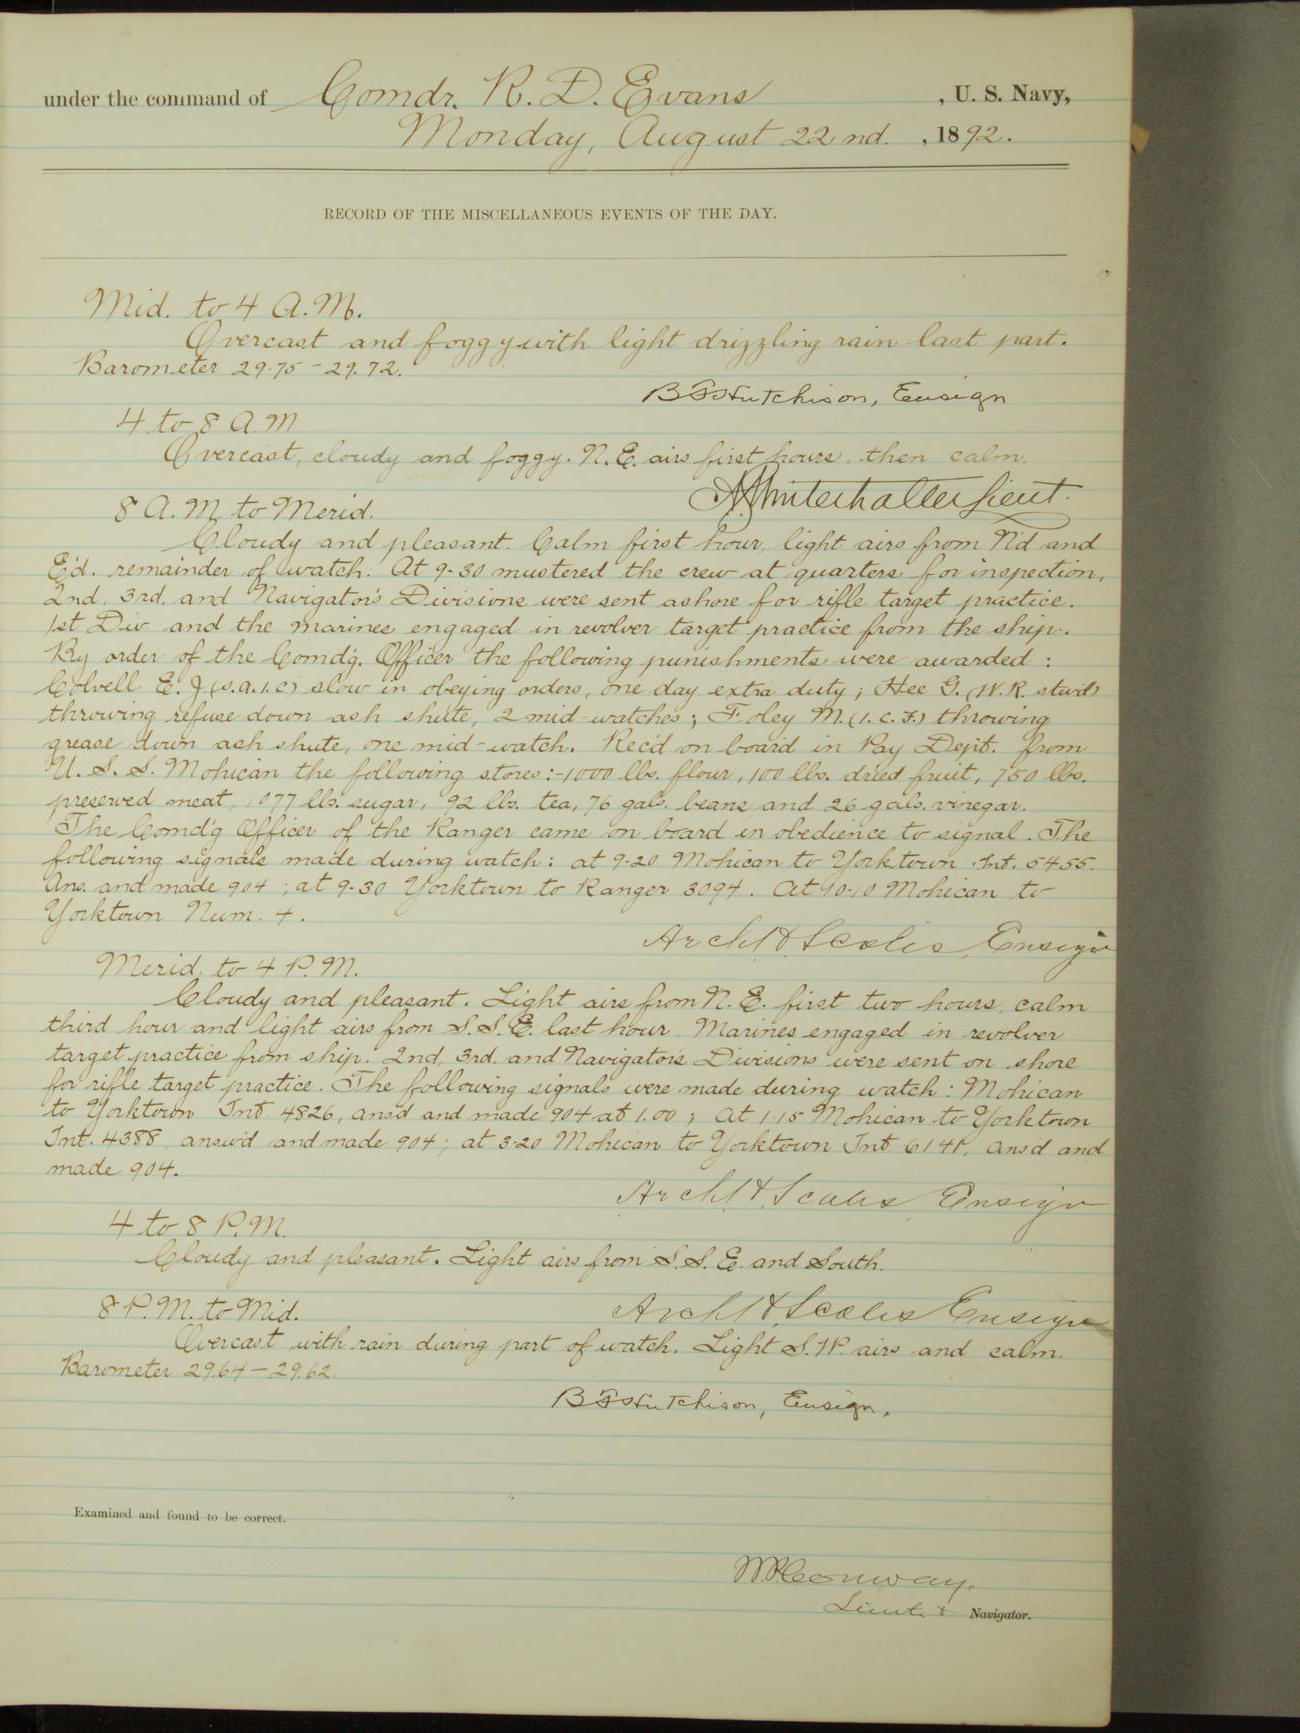 under the command of Comdr. R. D. Evans , U. S. Navy,
Monday, August 22nd. , 1892.
RECORD OF THE MISCELLANEOUS EVENTS OF THE DAY.
Mid. to 4 A.M.
Overcast and foggy with light drizzling rain last part.
Barometer 29.75 – 29.72.
B F Hutchison, Ensign
4 to 8 A.M
Overcast, cloudy and foggy. N.E. airs first hours, then calm.
Winterhalter Lieut.
8 A.M. to Merid.
Cloudy and pleasant. Calm first hour, light airs from N'd and
E'd. remainder of watch. At 9-30 mustered the crew at quarters for inspection,
2nd, 3rd, and Navigator's Divisions were sent ashore for rifle target practice.
1st Div and the marines engaged in revolver target practice from the ship.
By order of the Comd'g. Officer the following punishments were awarded :
Colvell E. J. (S.A.1.C) slow in obeying orders, one day extra duty ; Hee G. (W.R. stw'd)
throwing refuse down ash shute, 2 mid-watches ; Foley M. (1.C.F.) throwing
grease down ash shute, one mid-watch. Rec'd on board in Pay Dept. from
U. S. S. Mohican the following stores :- 1000 lbs. flour, 100 lbs. dried fruit, 750 lbs.
preserved meat, 1077 lbs. sugar, 92 lbs. tea, 76 gals. beans and 26 gals. vinegar.
The Comd'g Officer of the Ranger came on board in obedience to signal. The
following signals made during watch : at 9-20 Mohican to Yorktown Int. 5455.
Ans. and made 904 ; at 9-30 Yorktown to Ranger 3094. At 10-10 Mohican to
Yorktown Num. 4.
Arch'd H. Scales, Ensign
Merid. to 4 P.M.
Cloudy and pleasant. Light airs from N.E. first two hours, calm
third hour and light airs from S.S.E. last hour. Marines engaged in revolver
target practice from ship. 2nd, 3rd. and Navigator's Divisions were sent on shore
for rifle target practice. The following signals were made during watch : Mohican
to Yorktown Int 4826, ans'd and made 904 at 1.00 ; At 1-15 Mohican to Yorktown
Int. 4388, answ'd and made 904 ; at 3-20 Mohican to Yorktown Int 6141, ans'd and
made 904.
Arch'd H. Scales, Ensign
4 to 8 P.M.
Cloudy and pleasant. Light airs from S.S.E. and South.
Arch'd H. Scales Ensign
8 P.M. to Mid.
Overcast with rain during part of watch. Light S.W. airs and calm.
Barometer 29.64 – 29.62.
B F Hutchison, Ensign.
Examined and found to be correct.
W.P. Conway,
Lieut. & Navigator.